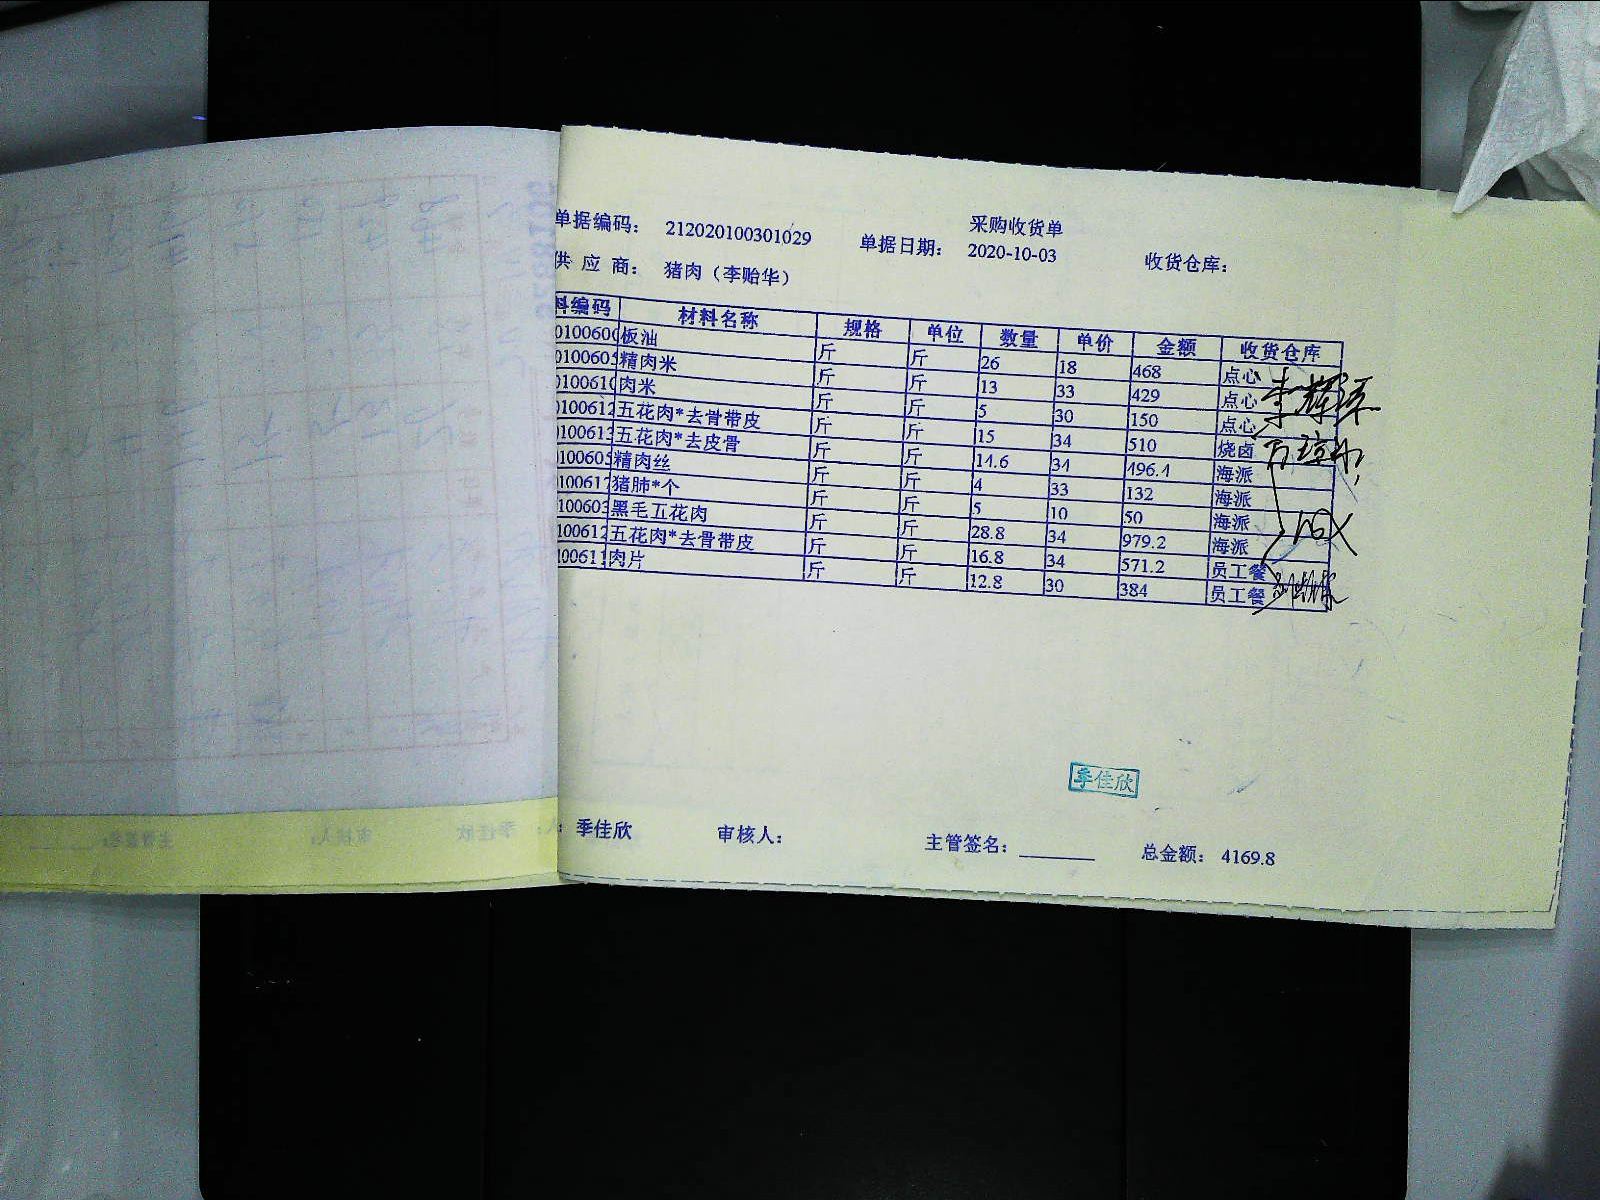 采购收货单
单据编码： 212020100301029 单据日期： 2020-10-03 收货仓库：
供 应 商： 猪肉（李贻华）
料编码 材料名称 规格 单位 数量 单价 金额 收货仓库
0100600 板油 斤 斤 26 18 468 点心
010060 精肉米 斤 斤 13 33 429 点心
010061 肉米 斤 斤 5 30 150 点心
0100612 五花肉*去骨带皮 斤 斤 15 34 510 烧卤
0100613 五花肉*去皮骨 斤 斤 14.6 34 496.4 海派
010060 精肉丝 斤 斤 4 33 132 海派
0100617 猪肺*个 斤 斤 5 10 50 海派
100603 黑毛五花肉 斤 斤 28.8 34 979.2 海派
100612 五花肉*去骨带皮 斤 斤 16.8 34 571.2 员工餐
100611 肉片 斤 斤 12.8 30 384 员工餐
季佳欣
： 季佳欣 审核人： 主管签名：________ 总金额： 4169.8